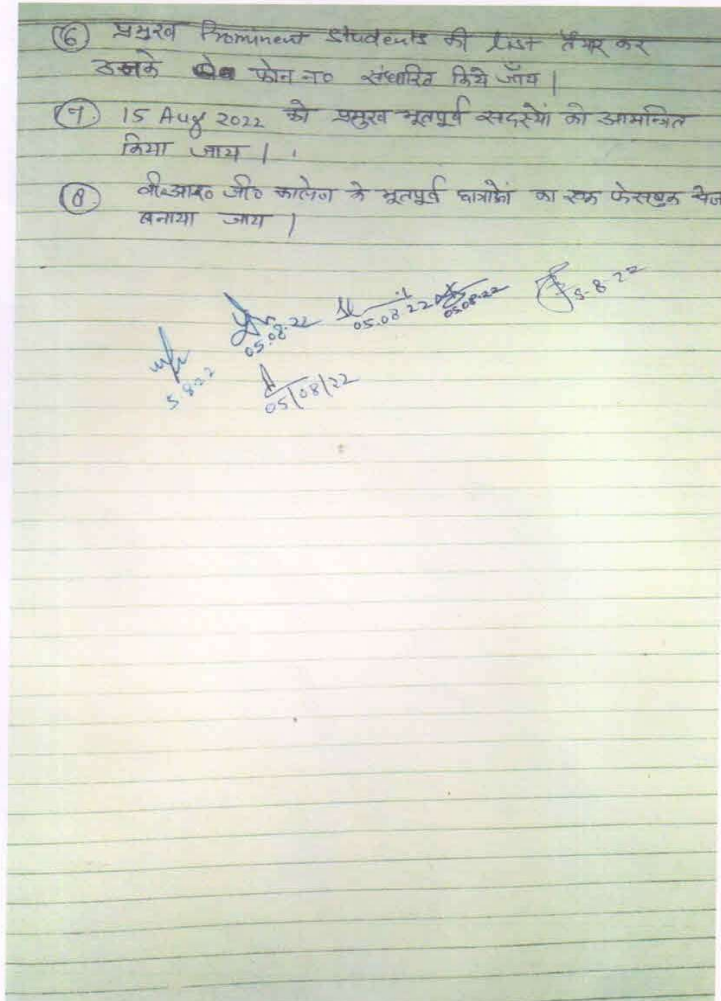 (6) प्रमुख Prominent Students की list तैयार कर
उनके फोन न० संधारित किये जाँय |
(7). 15 Aug 2022 को प्रमुख भूतपूर्व सदस्यों को आमन्त्रित
किया जाय |
(8) वी०आर० जी० कालेज के भूतपूर्व छात्राओं का एक फेसबुक पेज
बनाया जाय |
05.08.22
05.08.22
05.08.22
5-8-22
5.8.22
05/08/22